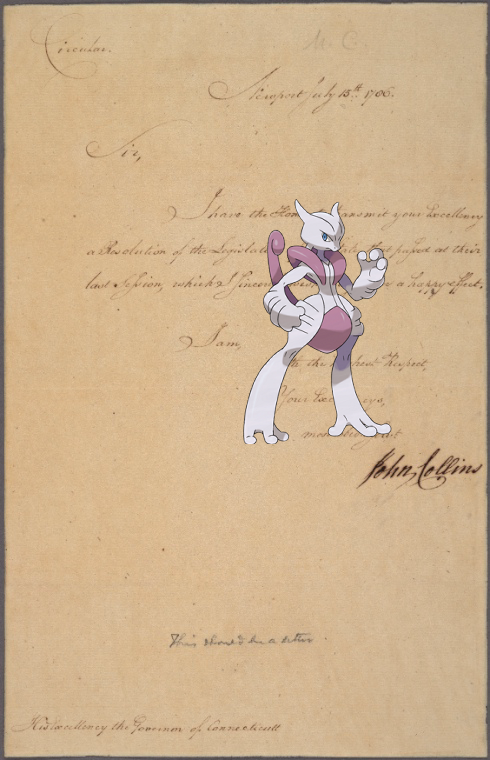 Circular.
M. C.
Newport July 13th 1786.
Sir,
I have the Hon transmit your Excellency
a Resolution of the Legislat passed at their
last Session, which I Sincere a happy Effect.
I am,
the highest Respect,
Your
most
John Collins
This should be a letter.
His Excellency the Governor of Connecticutt